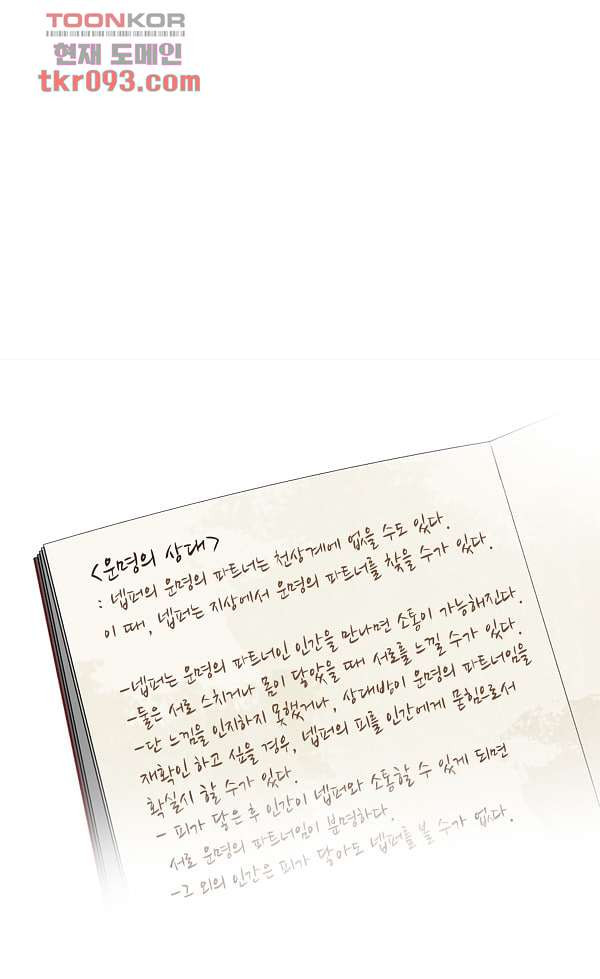 TOONKOR
현재 도메인
tkr093.com
<운명의 상대>
: 넵퍼의 운명의 파트너는 천상계에 없을 수도 있다.
이 때, 넵퍼는 지상에서 운명의 파트너를 찾을 수가 있다.
-넵퍼는 운명의 파트너인 인간을 만나면 소통이 가능해진다.
-둘은 서로 스치거나 몸이 닿았을 때 서로를 느낄 수가 있다.
-단 느낌을 인지하지 못했거나, 상대방이 운명의 파트너임을
재확인 하고 싶을 경우, 넵퍼의 피를 인간에게 묻힘으로서
확실시 할 수가 있다.
- 피가 닿은 후 인간이 넵퍼와 소통할 수 있게 되면
서로 운명의 파트너임이 분명하다.
-그 외의 인간은 피가 닿아도 넵퍼를 볼 수가 없다.